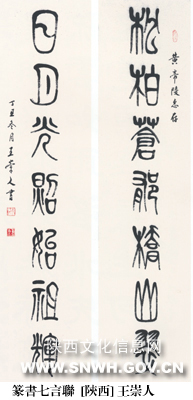 黄帝陵惠存
松柏蒼郁橋山翠
日月光照始祖輝
丁丑冬月王崇人書
陕西文化信息网
WWW.SNWH.GOV.CN
篆書七言聯 [陝西] 王崇人